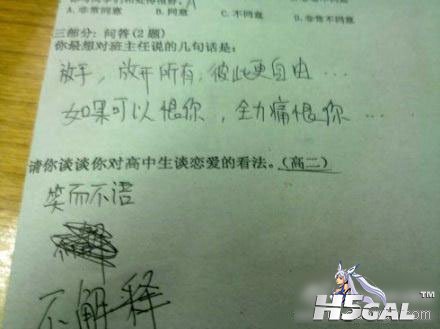 A
A. 非常同意 B. 同意 C. 不同意 D. 非常不同意
三部分: 问答(2 题)
你最想对班主任说的几句话是:
放手，放开所有，彼此更自由…
如果可以恨你，全力痛恨你…
请你谈谈你对高中生谈恋爱的看法。(高二)
笑而不语
不解释
H5GAL